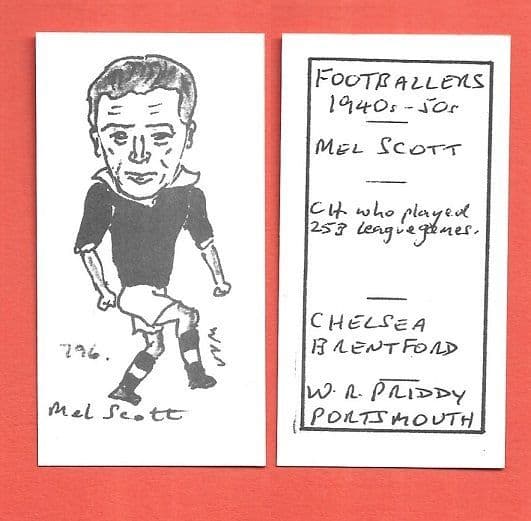 796.
Mel Scott
FOOTBALLERS
1940s - 50s
MEL SCOTT
CH who played
253 league games.
CHELSEA
BRENTFORD
W. R. PRIDDY
PORTSMOUTH